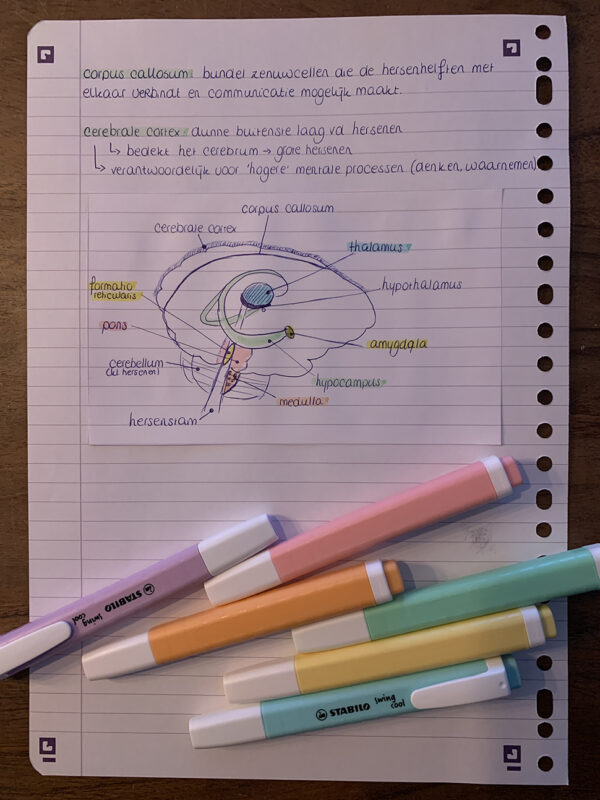 corpus callosum: bundel zenuwcellen die de hersenhelften met
elkaar verbindt en communicatie mogelijk maakt.
cerebrale cortex: dunne buitenste laag vd hersenen
↳ bedekt het cerebrum → grote hersenen
↳ verantwoordelijk voor 'hogere' mentale processen (denken, waarnemen)
corpus callosum
cerebrale cortex
thalamus
formatio
reticularis
hypothalamus
pons
amygdala
cerebellum
(kl hersenen)
hypocampus
medulla
hersenstam
STABILO swing
cool
STABILO swing
cool